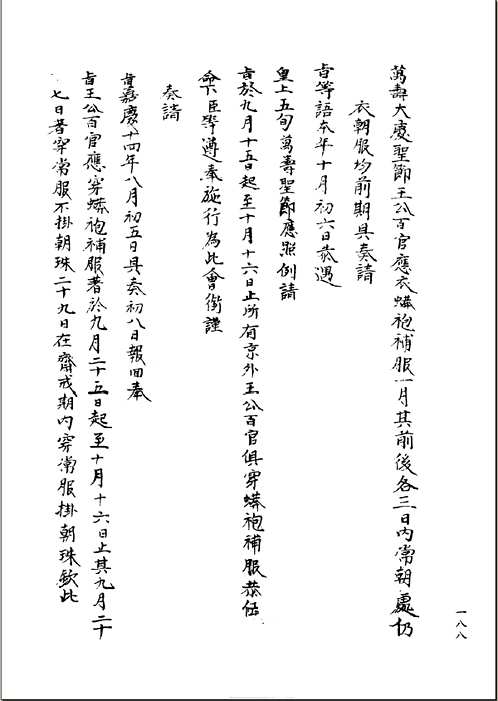 萬壽大慶聖節王公百官應衣蟒袍補服一月其前後各三日內常朝處仍
衣朝服均前期具奏請
旨等語本年十月初六日恭遇
皇上五旬萬壽聖節應照例請
旨於九月十五日起至十月十六日止所有京外王公百官俱穿蟒袍補服恭伍
命下臣等遵奉施行為此會銜謹
奏請
旨嘉慶十四年八月初五日具奏初八日報回奉
旨王公百官應穿蟒袍補服著於九月二十五日起至十月十六日止其九月二十
七日著穿常服不掛朝珠二十九日在齋戒期內穿常服掛朝珠欽此
一八八